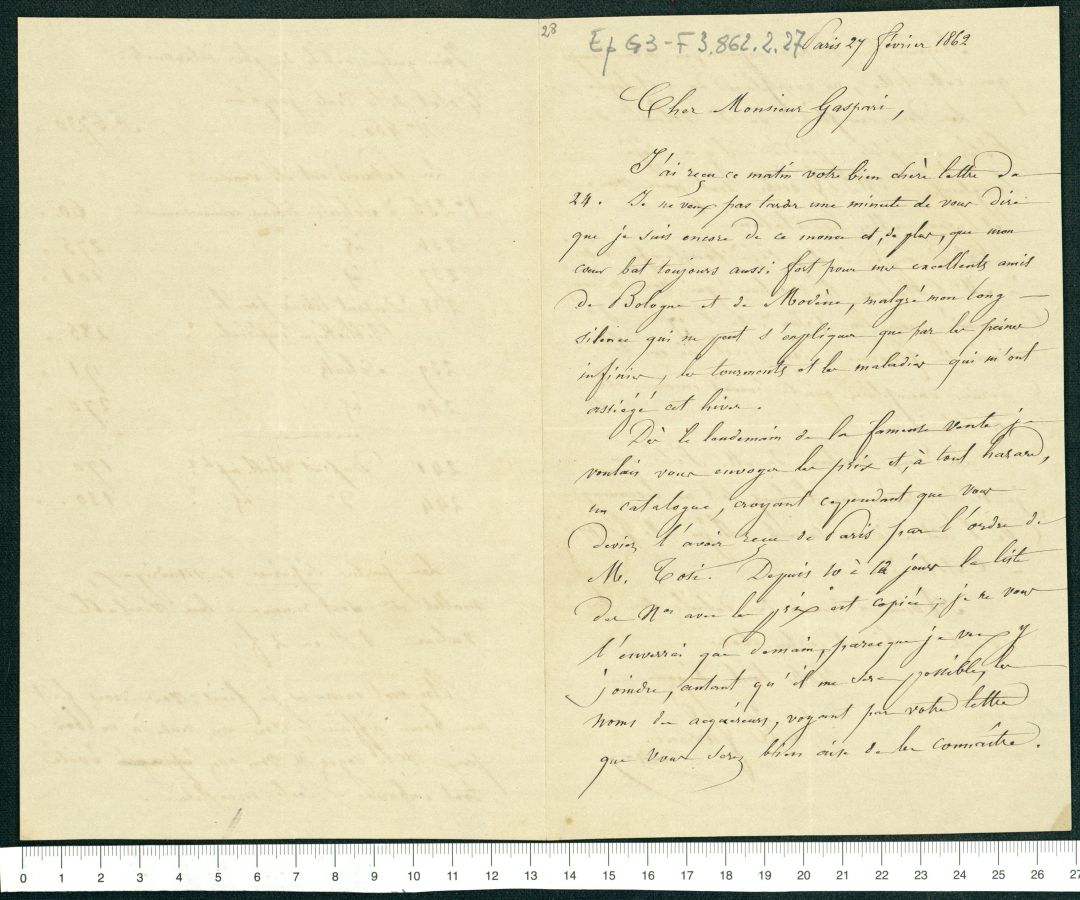 28
Ep G3-F3.862.2.27
Paris 27 février 1862
Cher Monsieur Gaspari,
J'ai reçu ce matin votre bien chère lettre du
24. Je ne veux pas tarder une minute de vous dire
que je suis encore de ce monde et, de plus, que mon
cœur bat toujours aussi fort pour mes excellents amis
de Bologne et de Modène, malgré mon long
silence qui ne peut s'expliquer que par les peines
infinies, les tourments et les maladies qui m'ont
assiégé cet hiver.
Dès le lendemain de la fameuse vente je
voulais vous envoyer les prix et, à tout hasard,
un catalogue, croyant cependant que vous
deviez l'avoir reçu de Paris par l'ordre de
M. Tosi. Depuis 10 à 12 jours la liste
des Nos avec les prix est copiée; je ne vous
l'enverrai que demain, parceque je veux y
joindre, autant qu'il me sera possible, les
noms des acquéreurs, voyant par votre lettre
que vous serez bien aise de les connaître.
0 1 2 3 4 5 6 7 8 9 10 11 12 13 14 15 16 17 18 19 20 21 22 23 24 25 26 27